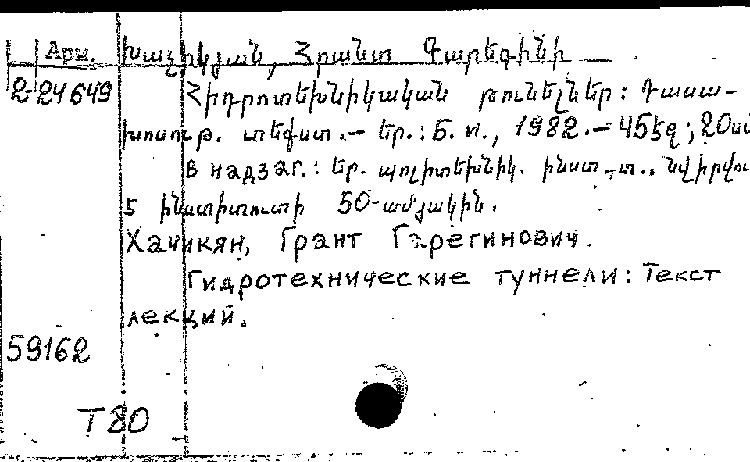 Арм. Խաչիկյան, Հրանտ Գարեգինի
2-24649 Հիդրոտեխնիկական թունելներ: Դասա-
խոսութ. տեքստ.— Եր.: Б. и., 1982.— 45 էջ; 20սմ
В надзаг.: Եր. պոլիտեխնիկ. ինստ-տ., նվիրվում
է ինստիտուտի 50-ամյակին.
Хачикян, Грант Гарегинович.
Гидротехнические туннели: Текст
лекций.
59162
Т 80